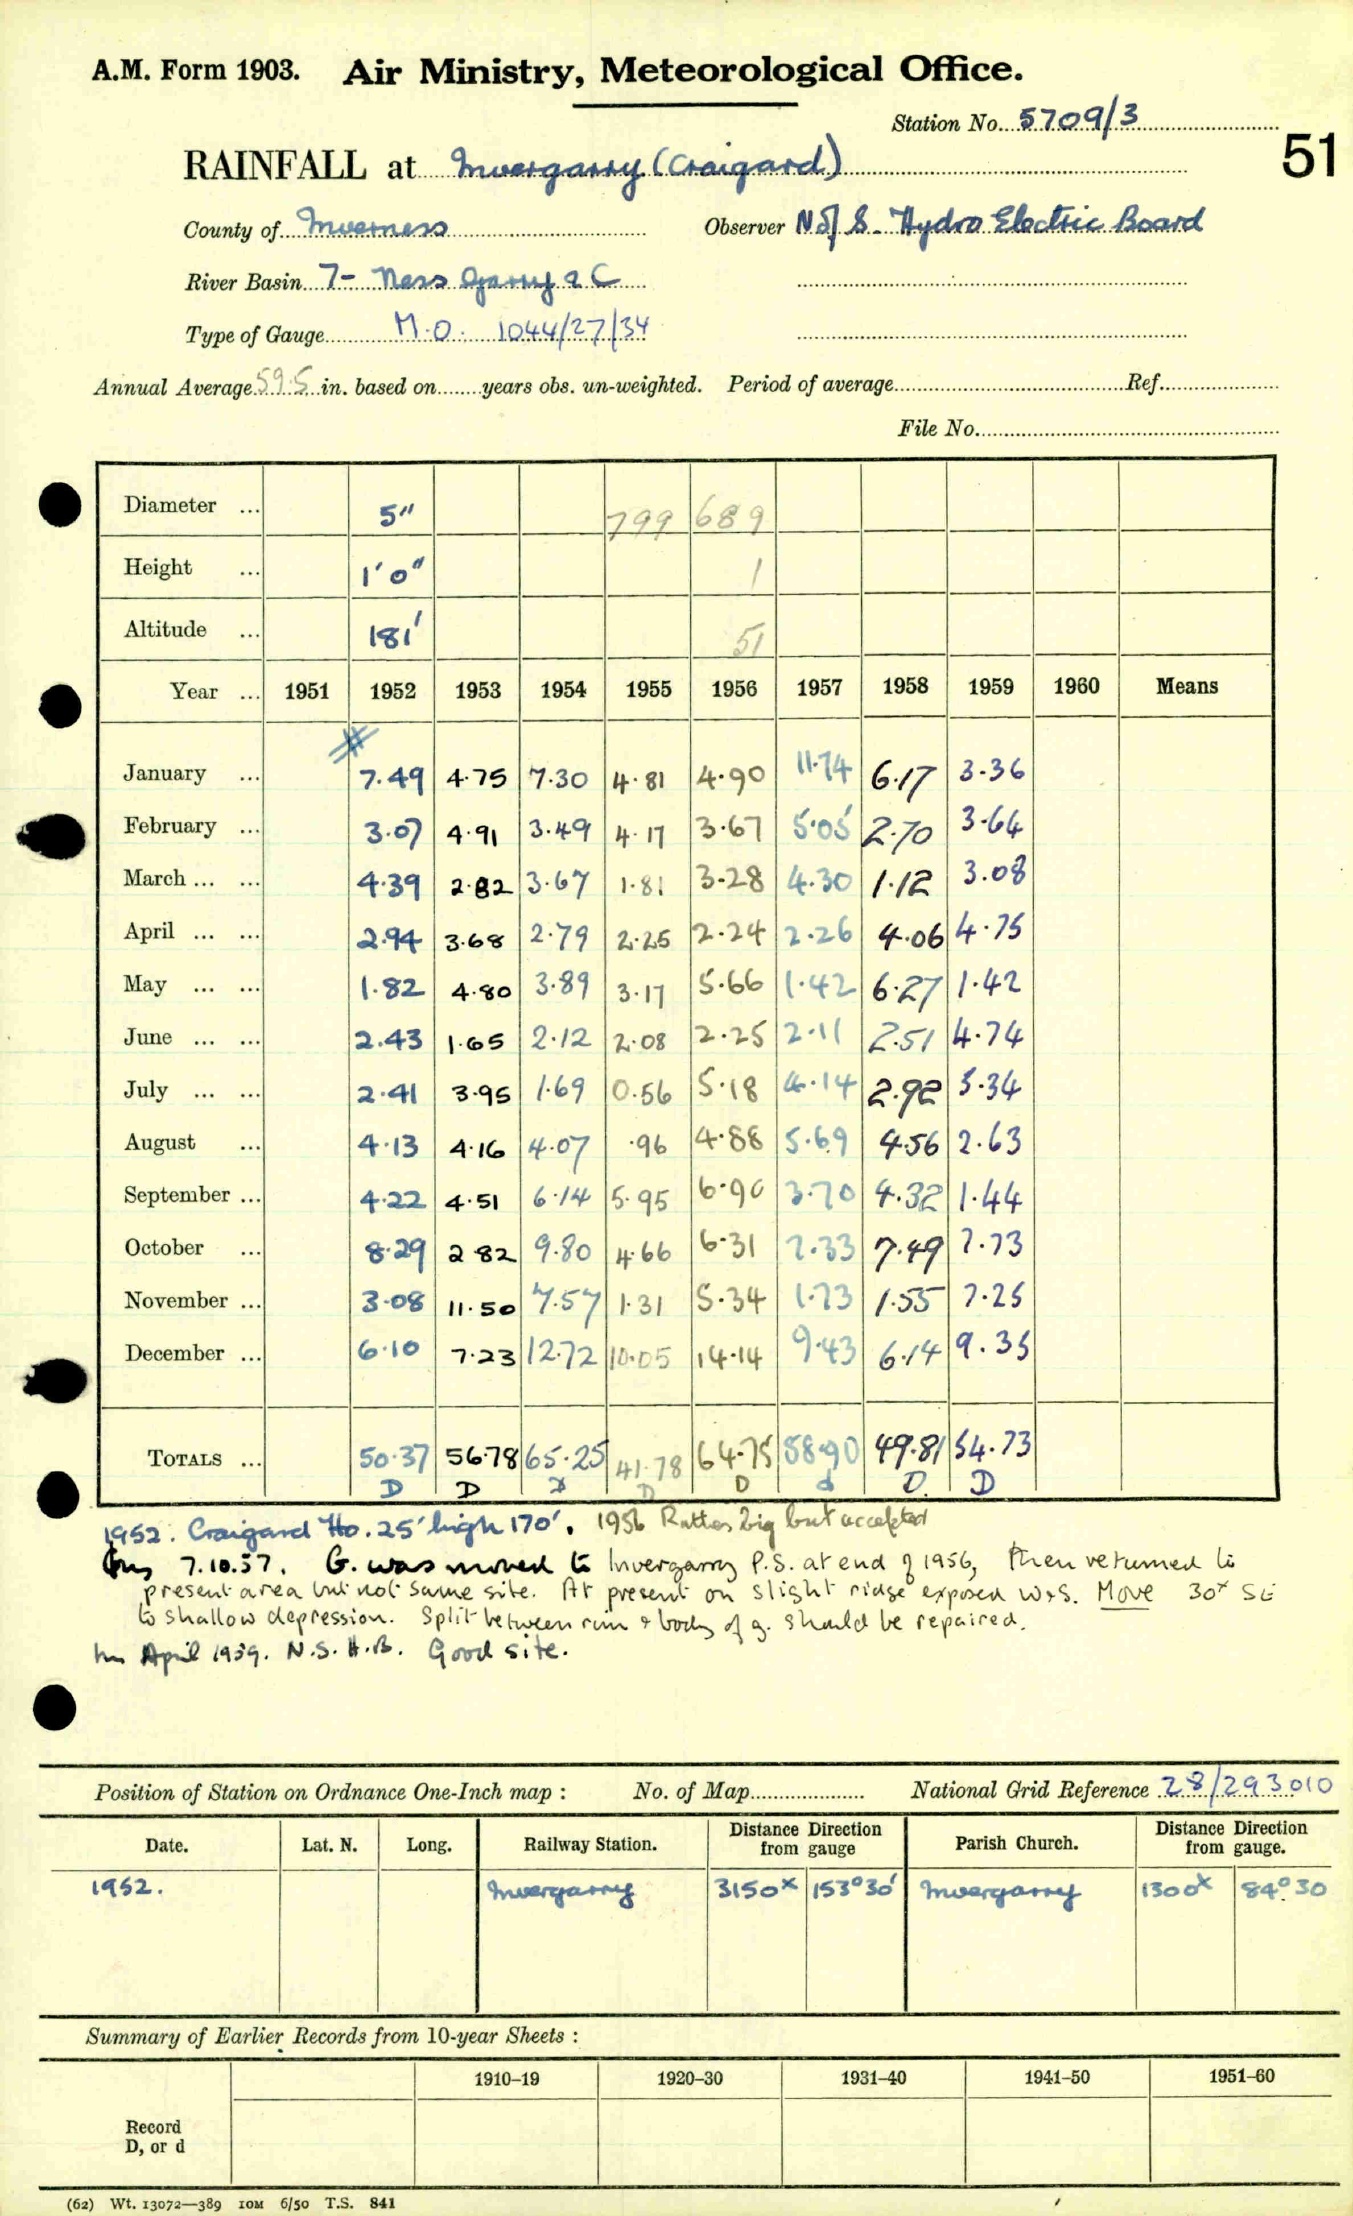 A.M. Form 1903. Air Ministry, Meteorological Office.
Station No. 5709/3
51
RAINFALL at Invergarry (Craigard)
County of Inverness Observer N of S. Hydro Electric Board
River Basin 7- Ness Garry & C
Type of Gauge M.O. 1044/27/34
Annual Average 59.5 in. based on years obs. un-weighted. Period of average Ref.
File No.
Diameter ... 5" 799 689
Height ... 1'0" 1
Altitude ... 181' 51
Year ... 1951 1952 1953 1954 1955 1956 1957 1958 1959 1960 Means
January ... 7.49 4.75 7.30 4.81 4.90 11.74 6.17 3.36
February ... 3.07 4.91 3.49 4.17 3.67 5.05 2.70 3.64
March ... ... 4.39 2.82 3.67 1.81 3.28 4.30 1.12 3.08
April ... ... 2.94 3.68 2.79 2.25 2.24 2.26 4.06 4.75
May ... ... 1.82 4.80 3.89 3.17 5.66 1.42 6.27 1.42
June ... ... 2.43 1.65 2.12 2.08 2.25 2.11 2.51 4.74
July ... ... 2.41 3.95 1.69 0.56 5.18 4.14 2.92 5.34
August ... 4.13 4.16 4.07 .96 4.88 5.69 4.56 2.63
September ... 4.22 4.51 6.14 5.95 6.90 3.70 4.32 1.44
October ... 8.29 2.82 9.80 4.66 6.31 7.33 7.49 7.73
November ... 3.08 11.50 7.57 1.31 5.34 1.73 1.55 7.25
December ... 6.10 7.23 12.72 10.05 14.14 9.43 6.14 9.35
TOTALS ... 50.37 56.78 65.25 41.78 64.75 58.90 49.81 54.73
D D D D d D. D
1952. Craigard Ho. 25' high 170'. 1956 Rather big but accepted
Ins 7.10.57. G. was moved to Invergarry P.S. at end of 1956, then returned to
present area but not same site. At present on slight ridge exposed W & S. Move 30x SE
to shallow depression. Split between rim & body of g. should be repaired.
Ins April 1959. N.S.H.B. Good site.
Position of Station on Ordnance One-Inch map : No. of Map National Grid Reference 28/293010
Date. Lat. N. Long. Railway Station. Distance Direction from gauge Parish Church. Distance Direction from gauge.
1952. Invergarry 3150x 153°30' Invergarry 1300x 84°30
Summary of Earlier Records from 10-year Sheets :
1910–19 1920–30 1931–40 1941–50 1951–60
Record
D, or d
(62) Wt. 13072—389 10M 6/50 T.S. 841